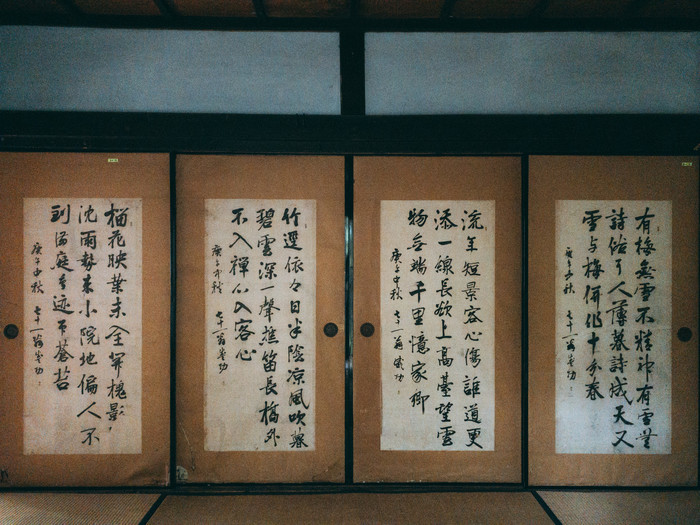 有梅無雪不精神有雪無
詩俗了人薄暮詩成天又
雪与梅併作十分春
庚子中秋 七十一翁
流年短景客心傷誰道更
添一線長欲上高臺望雲
物無端千里憶家鄉
庚子中秋 七十一翁
竹逕依々日半陰凉風吹暮
碧雲深一聲樵笛長橋外
不入禅心入客心
庚子中秋 七十一翁
榴花映葉未全開槐影
沈雨勢来小院地偏人不
到滿庭鳥迹印蒼苔
庚子中秋 七十一翁